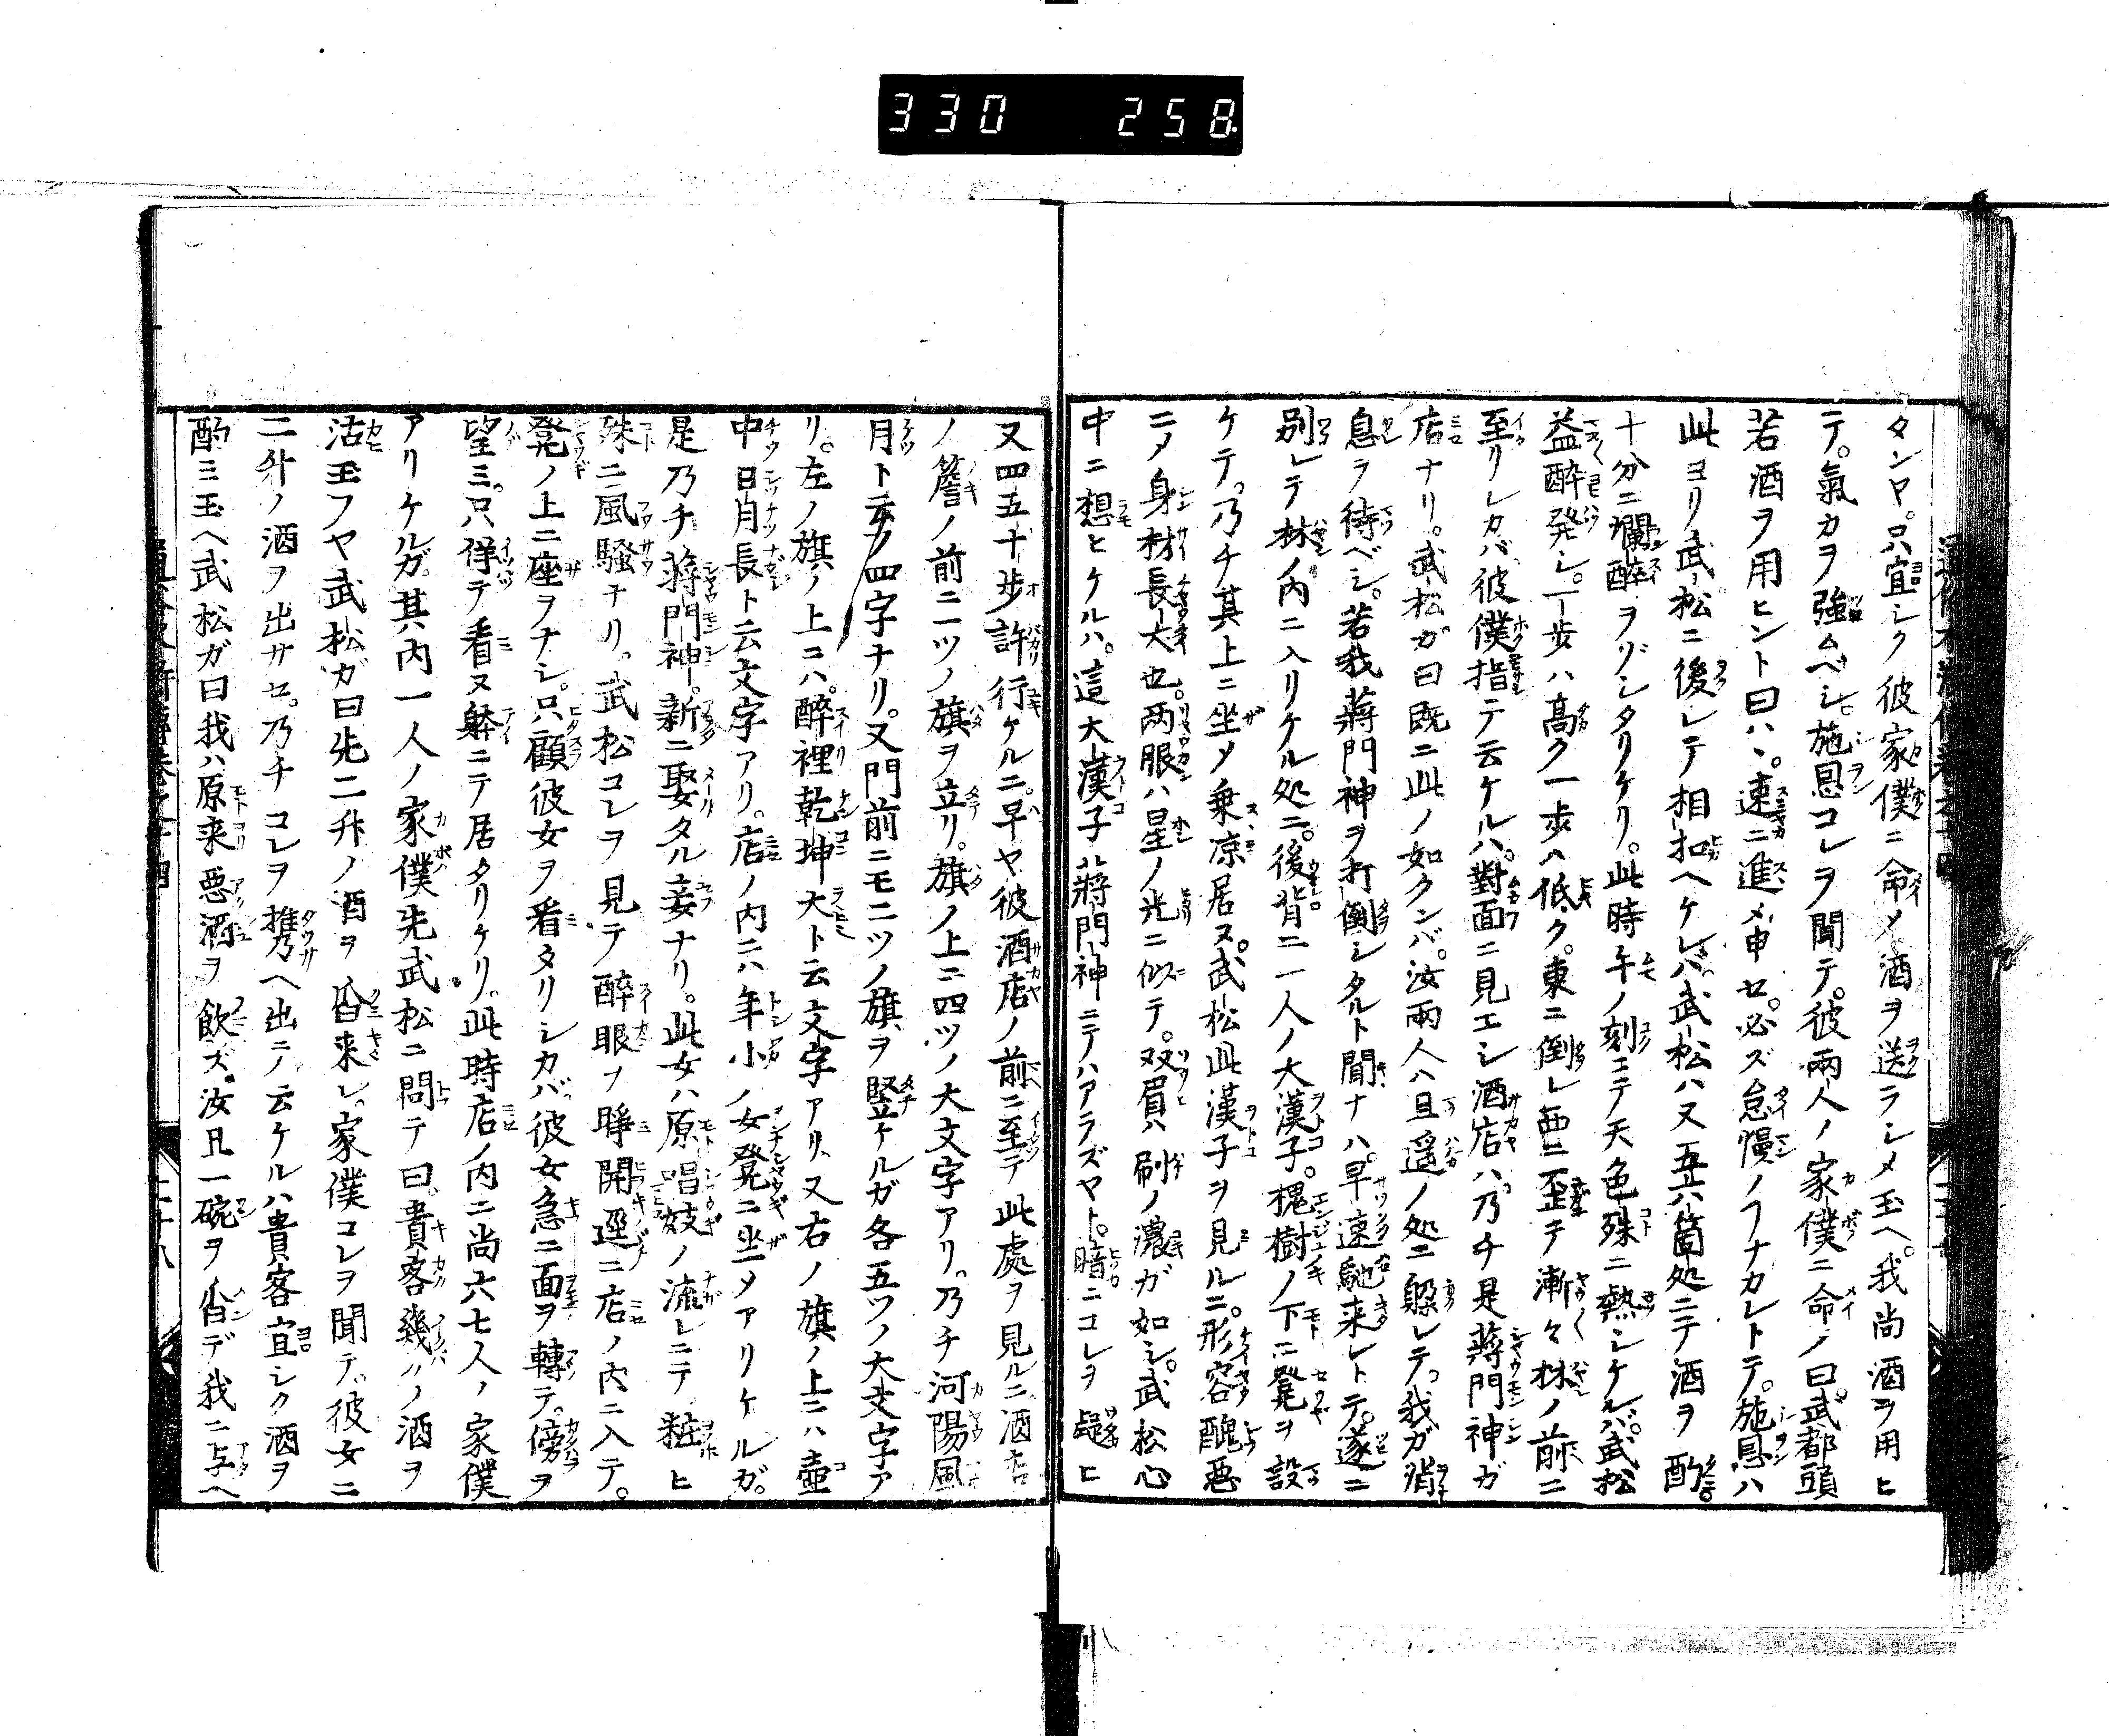 330 258
タンヤ。只宜シク彼家僕ニ命メ酒ヲ送ラシメ玉ヘ。我尚酒ヲ用ヒ
テ。氣力ヲ強ムベシ。施恩コレヲ聞テ。彼兩人ノ家僕ニ命ノ曰。武都頭
若酒ヲ用ヒント曰ハヾ。速ニ進メ申セ。必ズ怠慢ノフナカレトテ。施恩ハ
此ヨリ武松ニ後レテ相扣ヘケレバ。武松ハ又五六箇処ニテ酒ヲ酌。
十分ニ爛醉ヲゾシタリケリ。此時午ノ刻ニテ天色殊ニ熱シケルバ。武松
益醉発シ。一歩ハ高ク一歩ハ低ク。東ニ倒レ西ニ歪テ漸々林ノ前ニ
至リシカバ。彼僕指テ云ケルハ。對面ニ見エシ酒店ハ。乃チ是蔣門神ガ
店ナリ。武松ガ曰既ニ此ノ如クンバ。汝兩人ハ且遥ノ処ニ躱レテ。我ガ消
息ヲ待ベシ。若我蔣門神ヲ打倒シタルト聞ナハ。早速馳来レトテ。遂ニ
別レテ林ノ内ニ入リケル処ニ。後背ニ一人ノ大漢子。槐樹ノ下ニ凳ヲ設
ケテ。乃チ其上ニ坐メ乗凉居ス。武松此漢子ヲ見ルニ。形容醜悪
ニメ身材長大也。両眼ハ星ノ光ニ似テ。双眉ハ刷ノ濃ガ如シ。武松心
中ニ想ヒケルハ。這大漢子ハ蔣門神ニテハアラズヤト。暗ニコレヲ疑ヒ
又四五十歩許行ケルニ。早ヤ彼酒店ノ前ニ至テ此處ヲ見ルニ酒店
ノ簷ノ前ニ一ツノ旗ヲ立リ。旗ノ上ニ四ツノ大文字アリ。乃チ河陽風
月ト云フ四字ナリ。又門前ニモ二ツノ旗ヲ竪ケルガ各五ツノ大文字ア
リ。左ノ旗ノ上ニハ。醉裡乾坤大ト云文字アリ。又右ノ旗ノ上ニハ壷
中日月長ト云文字アリ。店ノ内ニハ年小ノ女凳ニ坐メアリケルガ。
是乃チ蔣門神。新ニ娶タル妾ナリ。此女ハ原唱妓ノ流レニテ粧ヒ
殊ニ風騒ナリ。武松コレヲ見テ醉眼ヲ睜開逕ニ店ノ内ニ入テ。
凳ノ上ニ座ヲナシ。只顧彼女ヲ看タリシカバ。彼女急ニ面ヲ轉テ。傍ヲ
望ミ。只佯テ看ヌ躰ニテ居タリケリ。此時店ノ内ニ尚六七人ノ家僕
アリケルガ。其内一人ノ家僕先武松ニ問テ曰。貴客幾ハノ酒ヲ
沽玉フヤ武松ガ曰先二升ノ酒ヲ舀来レ。家僕コレヲ聞テ。彼女ニ
二升ノ酒ヲ出サセ。乃チコレヲ携ヘ出ニノ云ケルハ貴客宜シク酒ヲ
酌ミ玉ヘ武松ガ曰我ハ原来悪酒ヲ飲ズ。汝且一碗ヲ舀デ我ニ与ヘ